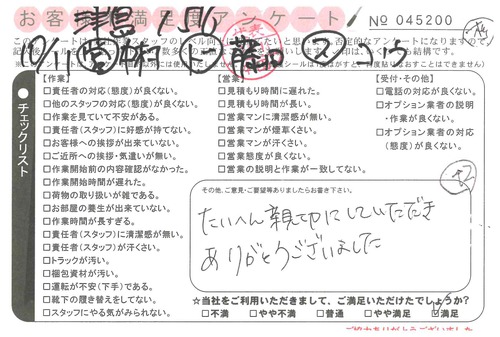 お客様満足度アンケート
No 045200
チェックリスト
【作業】
□責任者の対応(態度)が良くない。
□他のスタッフの対応(態度)が良くない。
□作業を見ていて不安がある。
□責任者(スタッフ)に好感が持てない。
□お客様への挨拶が出来ていない。
□ご近所への挨拶・気遣いが無い。
□作業開始前の内容確認がなかった。
□作業開始時間が遅れた。
□荷物の取り扱いが雑である。
□お部屋の養生が出来ていない。
□作業時間が長すぎる。
□責任者(スタッフ)に清潔感が無い。
□責任者(スタッフ)が汗くさい。
□トラックが汚い。
□梱包資材が汚い。
□運転が不安(下手)である。
□靴下の履き替えをしてない。
□スタッフにやる気がみられない。
【営業】
□見積もり時間に遅れた。
□見積もり時間が長い。
□営業マンに清潔感が無い。
□営業マンが煙草くさい。
□営業マンが汗くさい。
□営業態度が良くない。
□営業の説明と作業が一致してない。
【受付・その他】
□電話の対応が良くない。
□オプション業者の説明
・作業が良くない。
□オプション業者の対応
(態度)が良くない。
その他、ご意見・ご要望等ありましたらお書き下さい。
たいへん親切にしていただき
ありがとうございました
☆当社をご利用いただきまして、ご満足いただけたでしょうか?
□不満 □やや不満 □普通 □やや満足 ☑満足
ご協力ありがとうございました